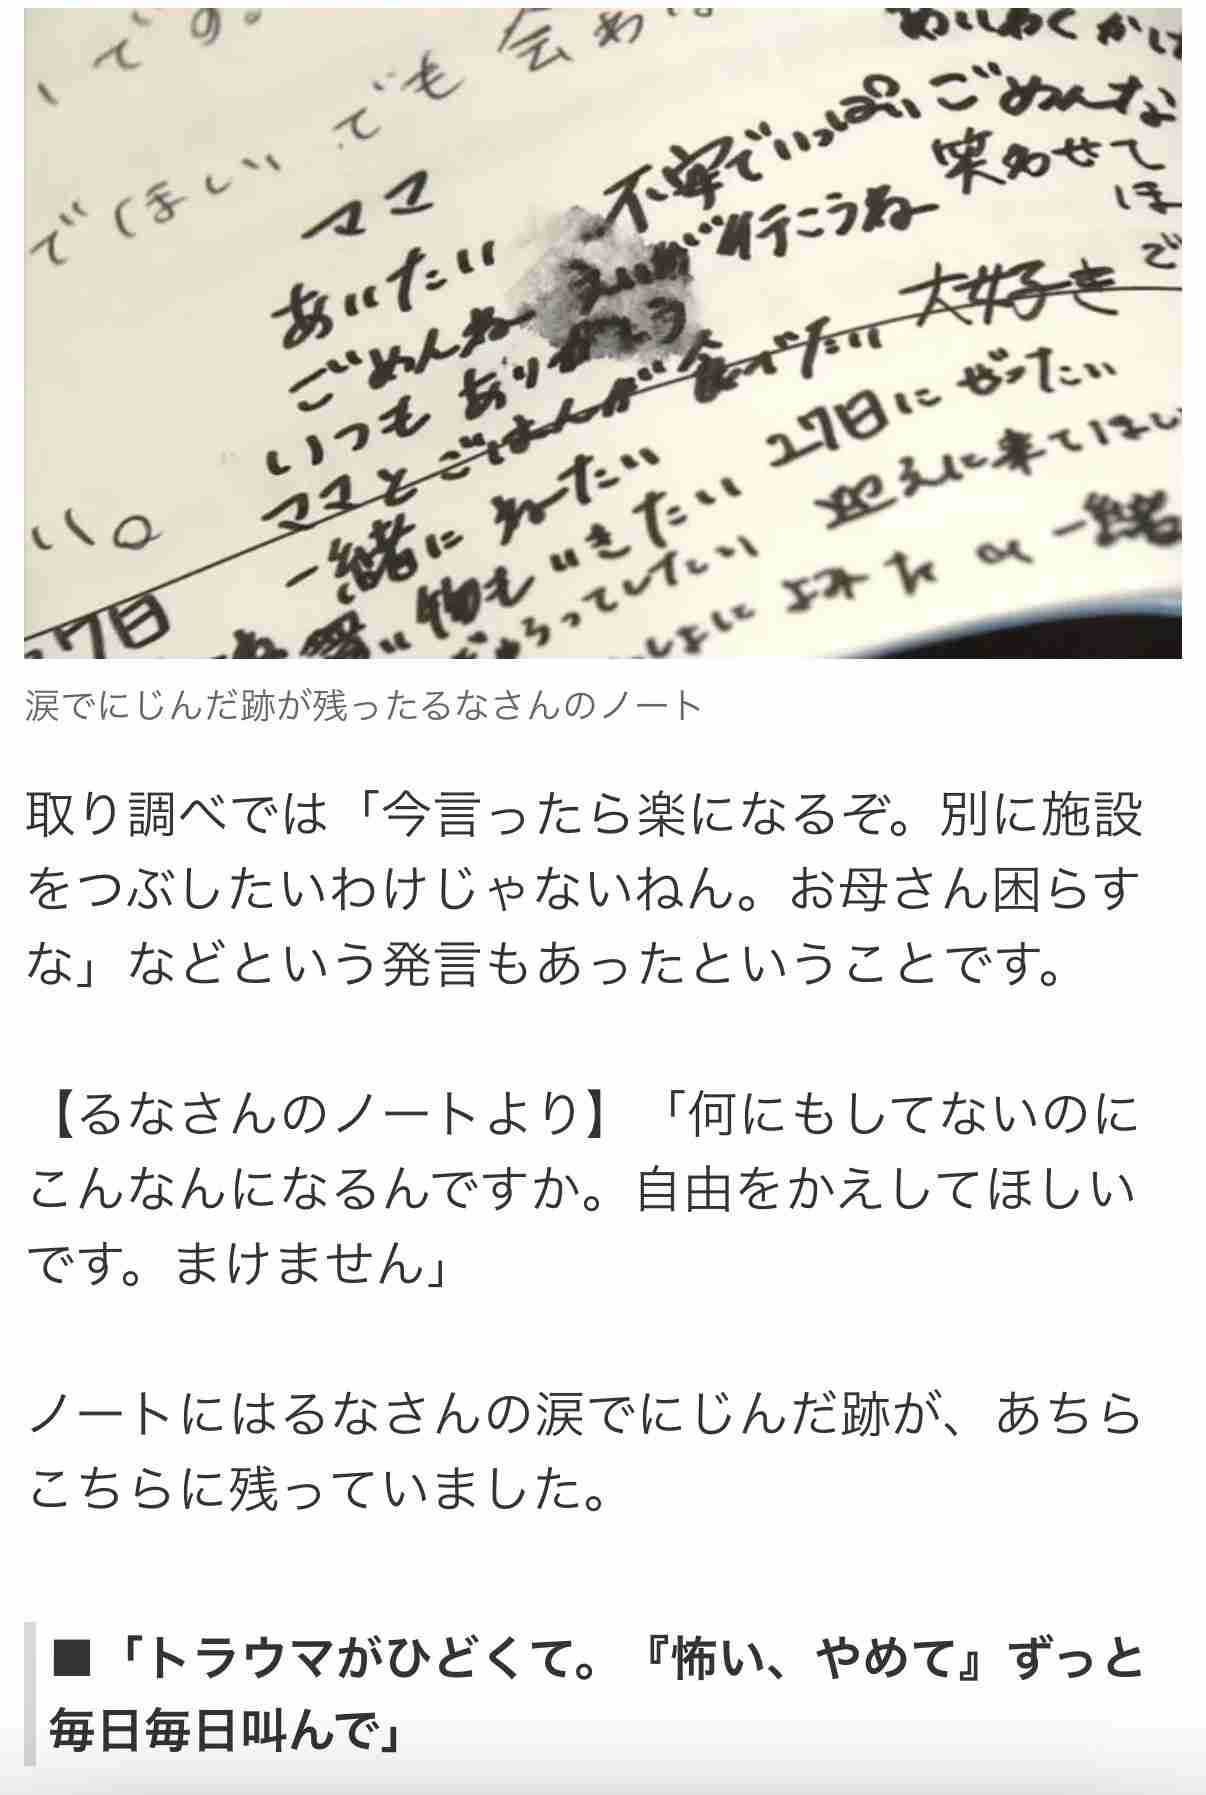 です。
でも会わ
でほしい
ママ
あいたい
ごめんね
いつもありがとう
ママとごはんが食べたい
一緒にねたい
買い物もいきたい
めいわくかけ
不安でいっぱいごめんな
えいが行こうね
笑わせて
ほ
で
大好き
27日にぜったい
迎えに来てほしい
一緒
い。
27日
涙でにじんだ跡が残ったるなさんのノート
取り調べでは「今言ったら楽になるぞ。別に施設
をつぶしたいわけじゃないねん。お母さん困らす
な」などという発言もあったということです。
【るなさんのノートより】「何にもしてないのに
こんなんになるんですか。自由をかえしてほしい
です。まけません」
ノートにはるなさんの涙でにじんだ跡が、あちら
こちらに残っていました。
■「トラウマがひどくて。『怖い、やめて』ずっと
毎日毎日叫んで」